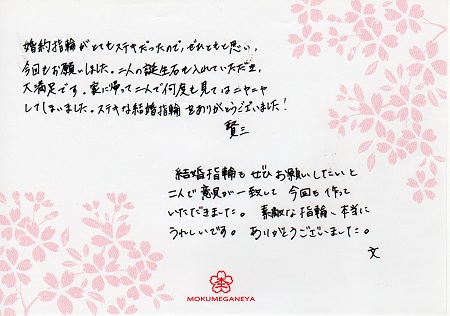 婚約指輪がとてもステキだったので、ぜひともと思い、
今回もお願いしました。二人の誕生石も入れていただき、
大満足です。家に帰って二人で何度も見てはニヤニヤ
してしまいました。ステキな結婚指輪をありがとうございました！
賢三
結婚指輪もぜひお願いしたいと
二人で意見が一致して今回も作って
いただきました。素敵な指輪、本当に
うれしいです。ありがとうございました。
文
MOKUMEGANEYA